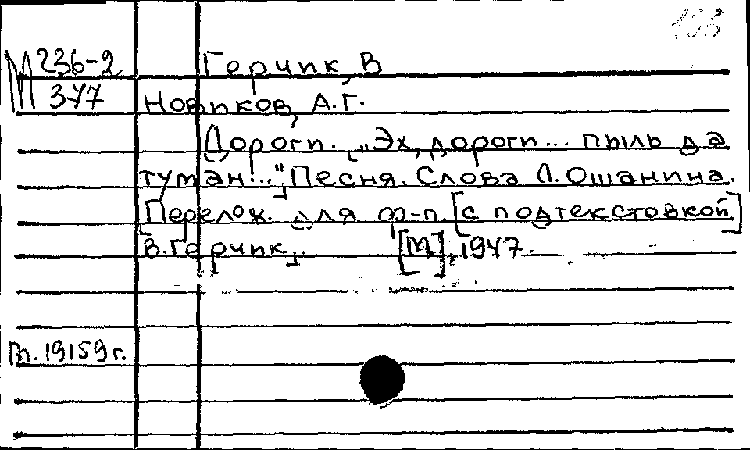 М 236-2
377
Герчик, В
Новиков, А.Г.
Дороги. „Эх, дороги... пыль да
туман..."; Песня. Слова Л. Ошанина.
[Перелож. для ф-п. [с подтекстовкой]
В. Герчик]. [М], 1947.
м. 19159г.